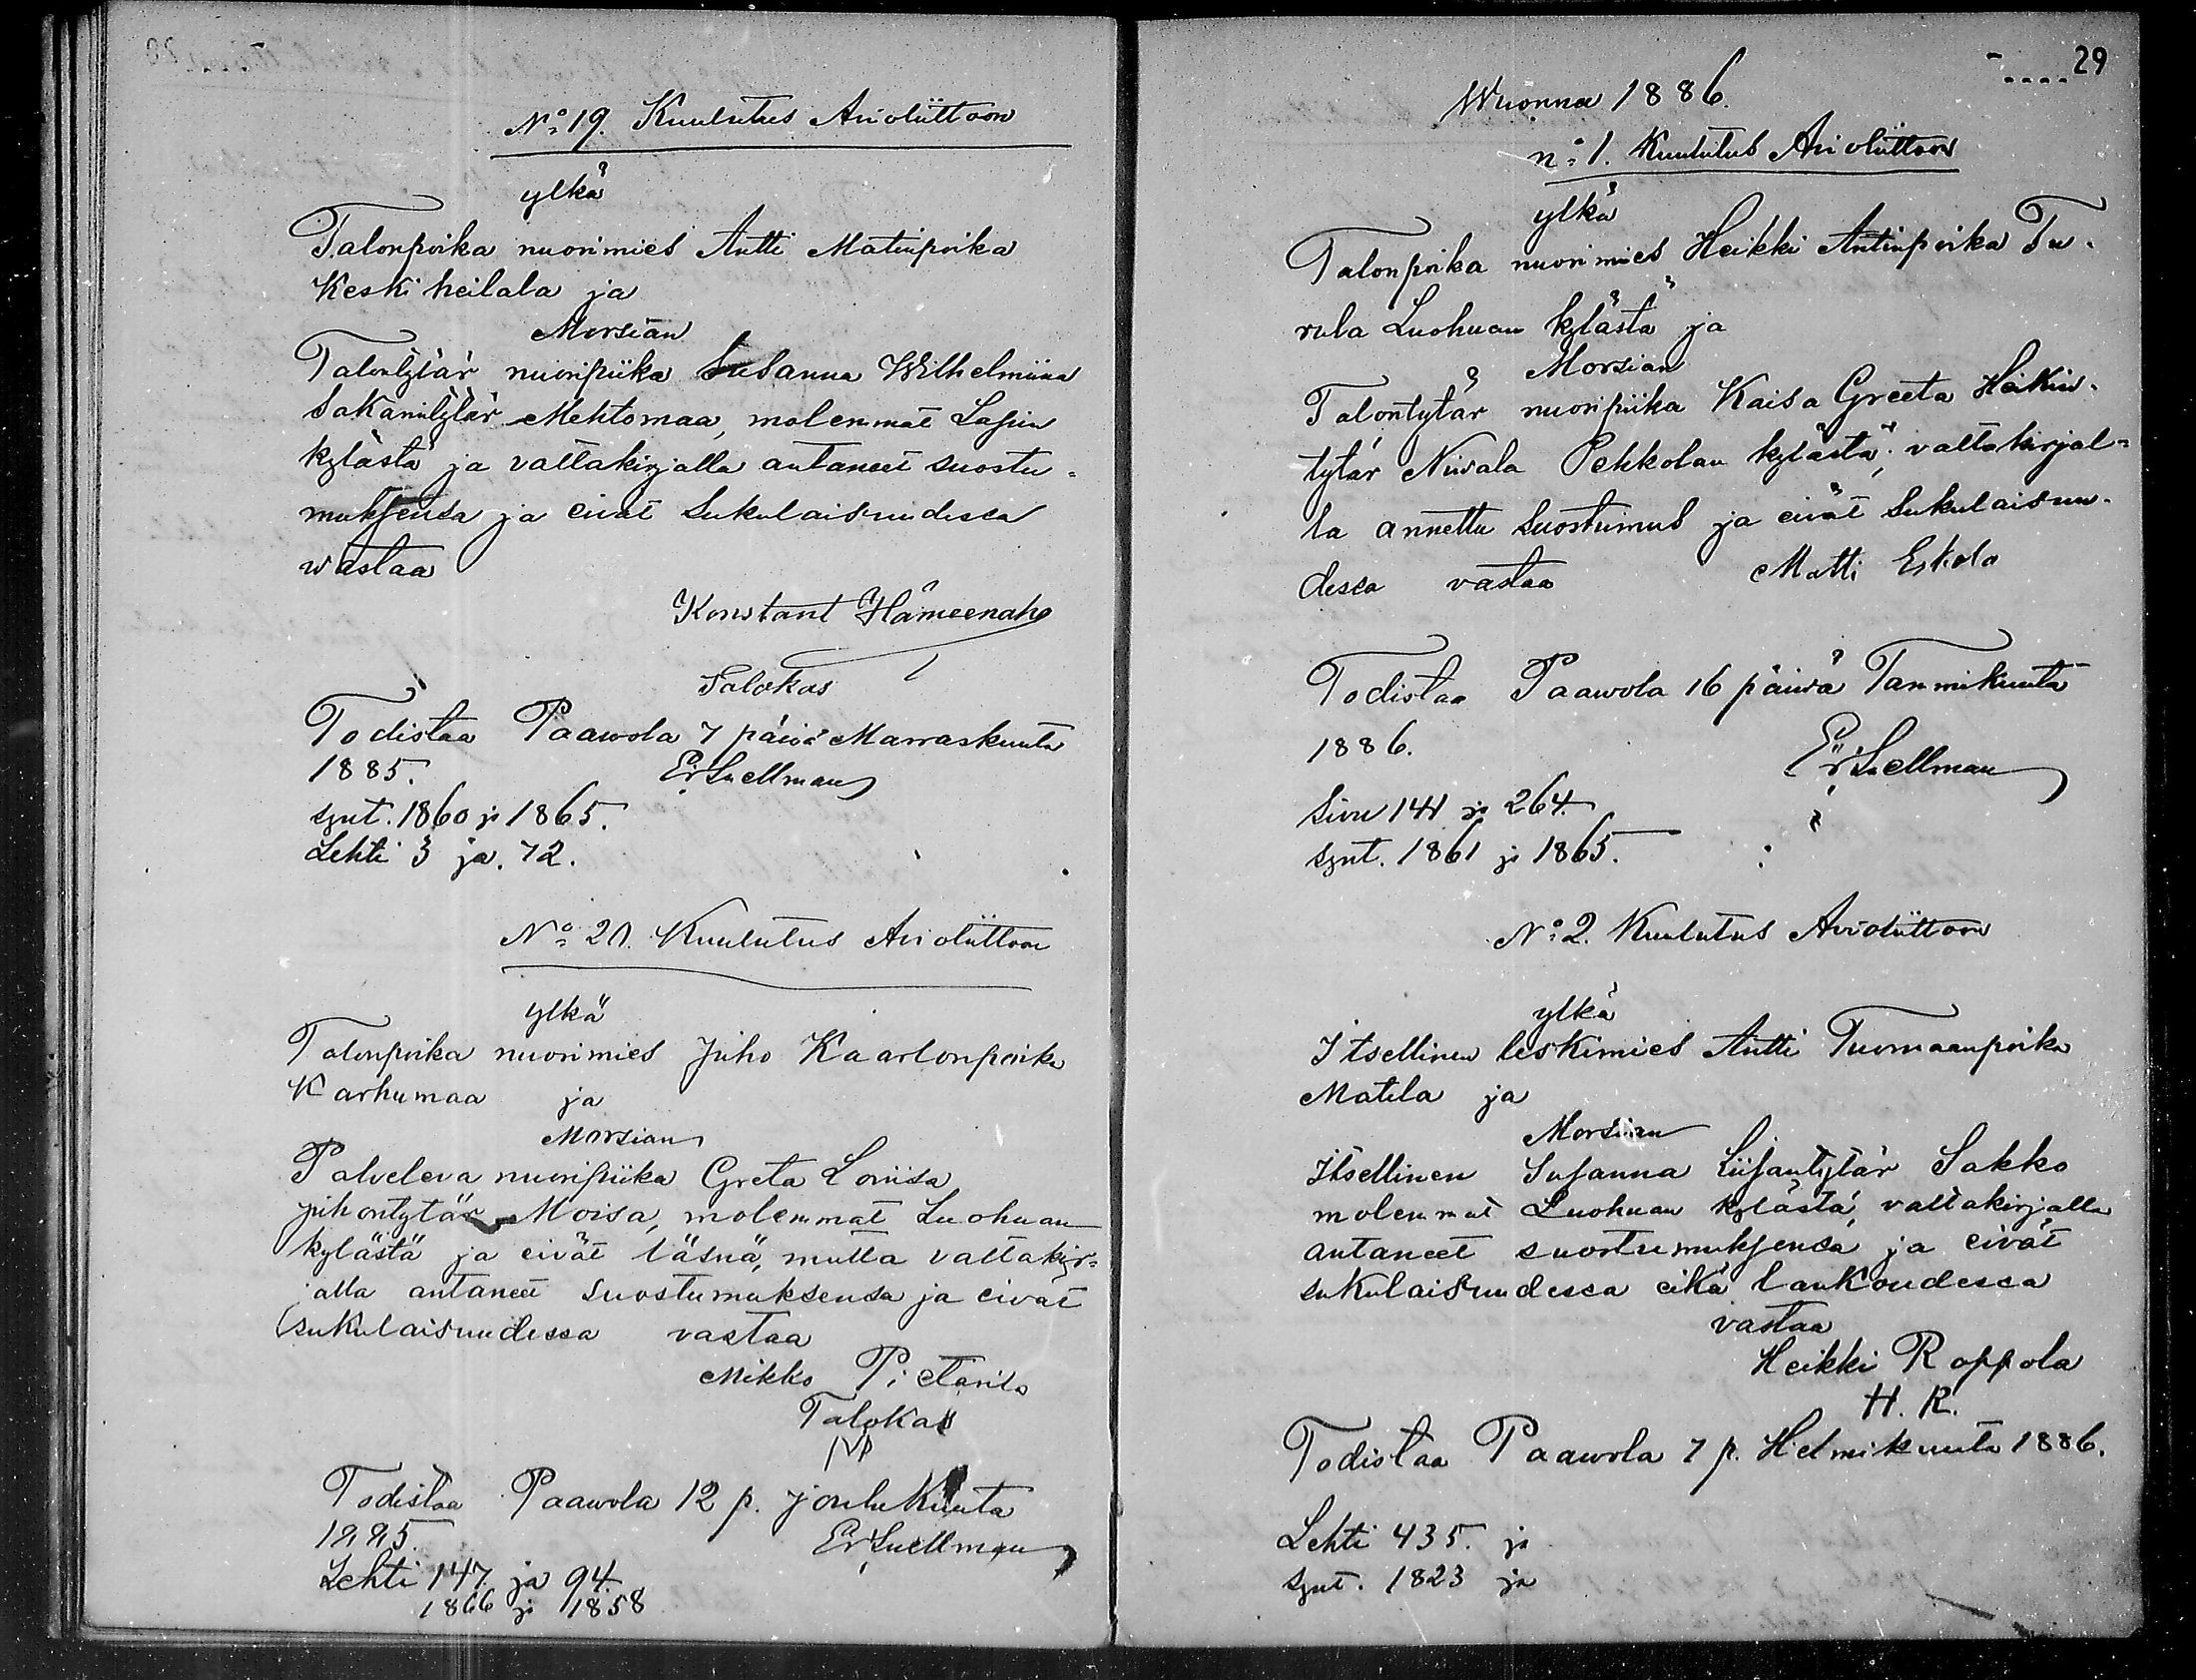 No 19. Kuulutus Avioliittoon
ylkä
Talonpoika nuorimies Antti Matinpoika
Keskiheilala ja
Morsian
Talontytär nuoripiika Susanna Wilhelmiina
Sakaritytär Mehtomaa, molemmat Lapin
kylästä ja valtakirjalla antaneet suostu=
muksensa ja eivät sukulaisuudessa
wastaa
Konstant Hämeenaho
Talokas
Todistaa Paawola 7 päivä Marraskuuta
1885. Er Snellman
synt. 1860 ja 1865.
Lehti 3 ja 72.
No 20. Kuulutus Avioliittoon
ylkä
Talonpoika nuorimies Juho Kaarlonpoika
Karhumaa ja
Morsian
Palveleva nuoripiika Greta Loviisa
juhontytär Moisa, molemmat Luohuan
kylästä ja eivät läsnä, mutta valtakir=
jalla antaneet suostumuksensa ja eivät
sukulaisuudessa vastaa
Mikko Pietarila
Talokas
MP
Todistaa Paawola 12 p. joulukuuta
1885. Er Snellman
Lehti 147. ja 94.
1866 ja 1858
29
Wuonna 1886.
no 1. Kuulutus Avioliittoon
ylkä
Talonpoika nuorimies Heikki Antinpoika Tu-
rula Luohuan kylästä ja
Morsian
Talontytär nuoripiika Kaisa Greeta Heikin-
tytär Niwala Pehkolan kylästä; valtakirjal=
la annettu suostumus ja eivät sukulaisuu-
dessa vastaa Matti Eskola
Todistaa Paawola 16 päivä Tammikuuta
1886. Er Snellman
Sivu 141 ja 264.
synt. 1861 ja 1865.
No 2. Kuulutus Avioliittoon
ylkä
Itsellinen leskimies Antti Tuomaanpoika
Matila ja
Morsian
Itsellinen Susanna Liisantytär Sakko
molemmat Luohuan kylästä, valtakirjalla
antaneet suostumuksensa ja eivät
sukulaisuudessa eikä lankoudessa
vastaa
Heikki Roppola
H. R.
Todistaa Paawola 7 p. Helmikuuta 1886.
Lehti 435. ja
synt. 1823 ja